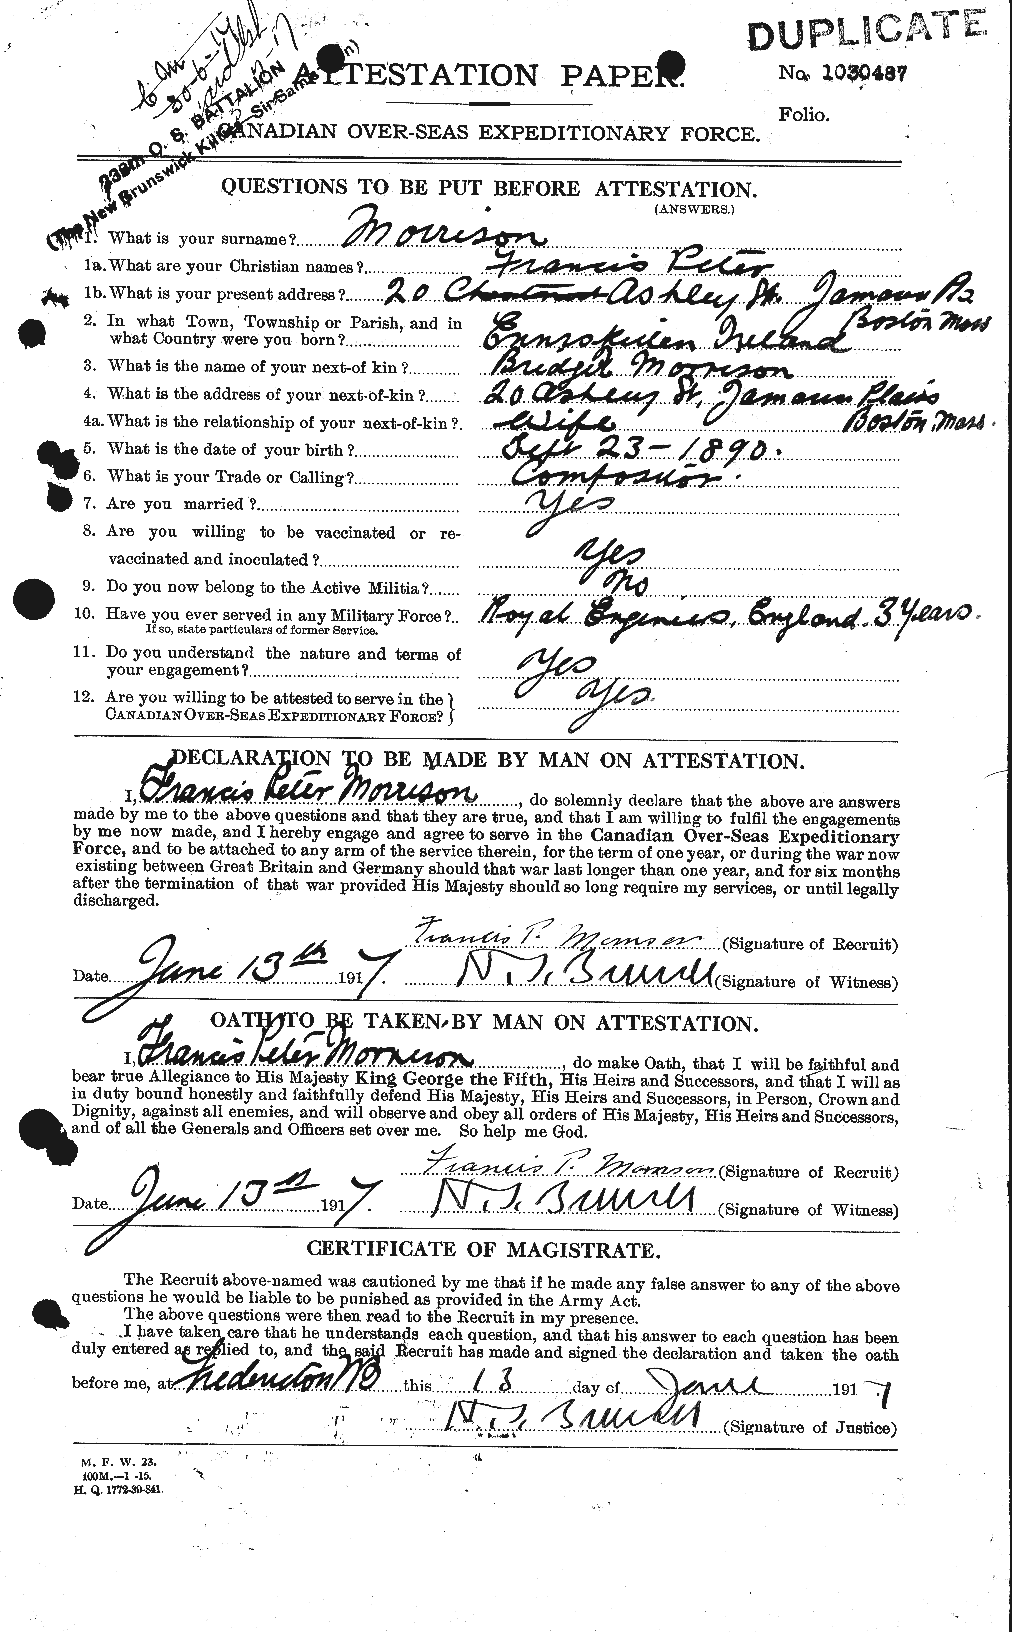 DUPLICATE
ATTESTATION PAPER.
No. 1030487
Folio.
CANADIAN OVER-SEAS EXPEDITIONARY FORCE.
O. S. BATTALION
QUESTIONS TO BE PUT BEFORE ATTESTATION.
(ANSWERS.)
1. What is your surname? Morrison
1a. What are your Christian names? Francis Peter
1b. What is your present address? 20 Chestnut Ashley St.
Boston Mass
2. In what Town, Township or Parish, and in
what Country were you born? Ennskillen Ireland
3. What is the name of your next-of kin? Bridget Morrison
4. What is the address of your next-of-kin? 20 Ashley St, Jamacun Plains
4a. What is the relationship of your next-of-kin? Wife Boston, Mass.
5. What is the date of your birth? Sept 23-1890.
6. What is your Trade or Calling? Compositor.
7. Are you married? Yes
8. Are you willing to be vaccinated or re-
vaccinated and inoculated? Yes
9. Do you now belong to the Active Militia? No
10. Have you ever served in any Military Force? Royal Engineers, England. 3 Years.
If so, state particulars of former Service.
11. Do you understand the nature and terms of
your engagement? Yes
12. Are you willing to be attested to serve in the
CANADIAN OVER-SEAS EXPEDITIONARY FORCE? Yes.
DECLARATION TO BE MADE BY MAN ON ATTESTATION.
I, Francis Peter Morrison, do solemnly declare that the above are answers
made by me to the above questions and that they are true, and that I am willing to fulfil the engagements
by me now made, and I hereby engage and agree to serve in the Canadian Over-Seas Expeditionary
Force, and to be attached to any arm of the service therein, for the term of one year, or during the war now
existing between Great Britain and Germany should that war last longer than one year, and for six months
after the termination of that war provided His Majesty should so long require my services, or until legally
discharged.
Francis P. Morrison (Signature of Recruit)
Date June 13th 1917. (Signature of Witness)
OATH TO BE TAKEN BY MAN ON ATTESTATION.
I, Francis Peter Morrison, do make Oath, that I will be faithful and
bear true Allegiance to His Majesty King George the Fifth, His Heirs and Successors, and that I will as
in duty bound honestly and faithfully defend His Majesty, His Heirs and Successors, in Person, Crown and
Dignity, against all enemies, and will observe and obey all orders of His Majesty, His Heirs and Successors,
and of all the Generals and Officers set over me. So help me God.
Francis P. Morrison (Signature of Recruit)
Date June 13th 1917. (Signature of Witness)
CERTIFICATE OF MAGISTRATE.
The Recruit above-named was cautioned by me that if he made any false answer to any of the above
questions he would be liable to be punished as provided in the Army Act.
The above questions were then read to the Recruit in my presence.
I have taken care that he understands each question, and that his answer to each question has been
duly entered as replied to, and the said Recruit has made and signed the declaration and taken the oath
before me, at Fredericton NB this 13 day of June 1917
(Signature of Justice)
M. F. W. 23.
400M.—1 -15.
H. Q. 1772-39-841.